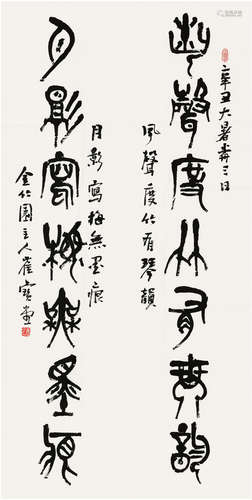 辛丑大暑前三日
風聲度竹有琴韻
風聲度竹有琴韻
月影寫梅無墨痕
月影寫梅無墨痕
金竹園主人崔寶堂